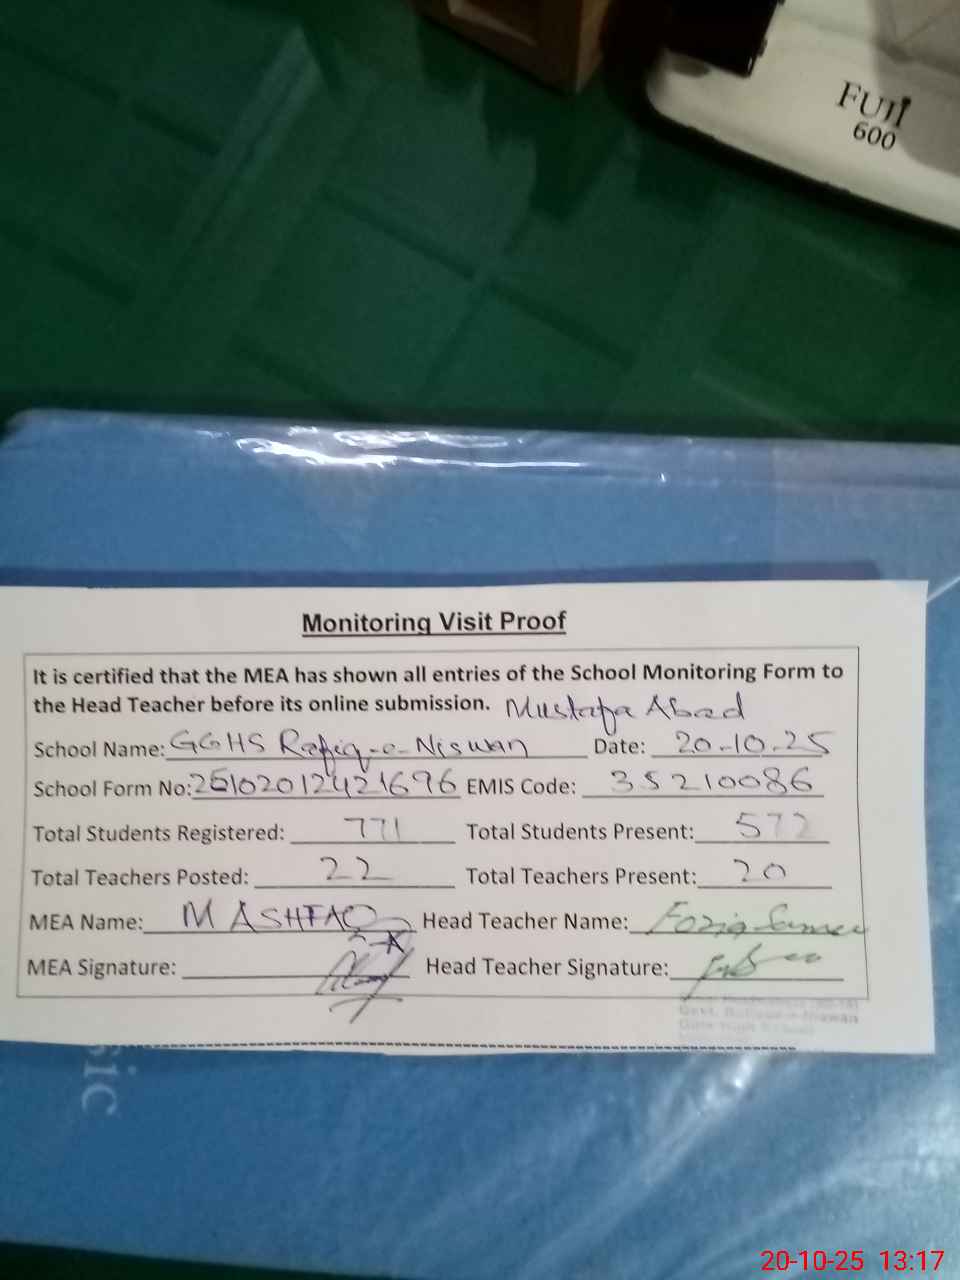 FUJI
600
Monitoring Visit Proof
It is certified that the MEA has shown all entries of the School Monitoring Form to
the Head Teacher before its online submission. Mustafa Abad
School Name: GGHS Rafiq-e-Niswan Date: 20-10-25
School Form No: 25102012421696 EMIS Code: 35210086
Total Students Registered: 771 Total Students Present: 572
Total Teachers Posted: 22 Total Teachers Present: 20
MEA Name: M ASHFAQ Head Teacher Name: Fozia
MEA Signature: Head Teacher Signature:
Govt. Rafique-e-Niswan
Girls High School
sic
20-10-25 13:17